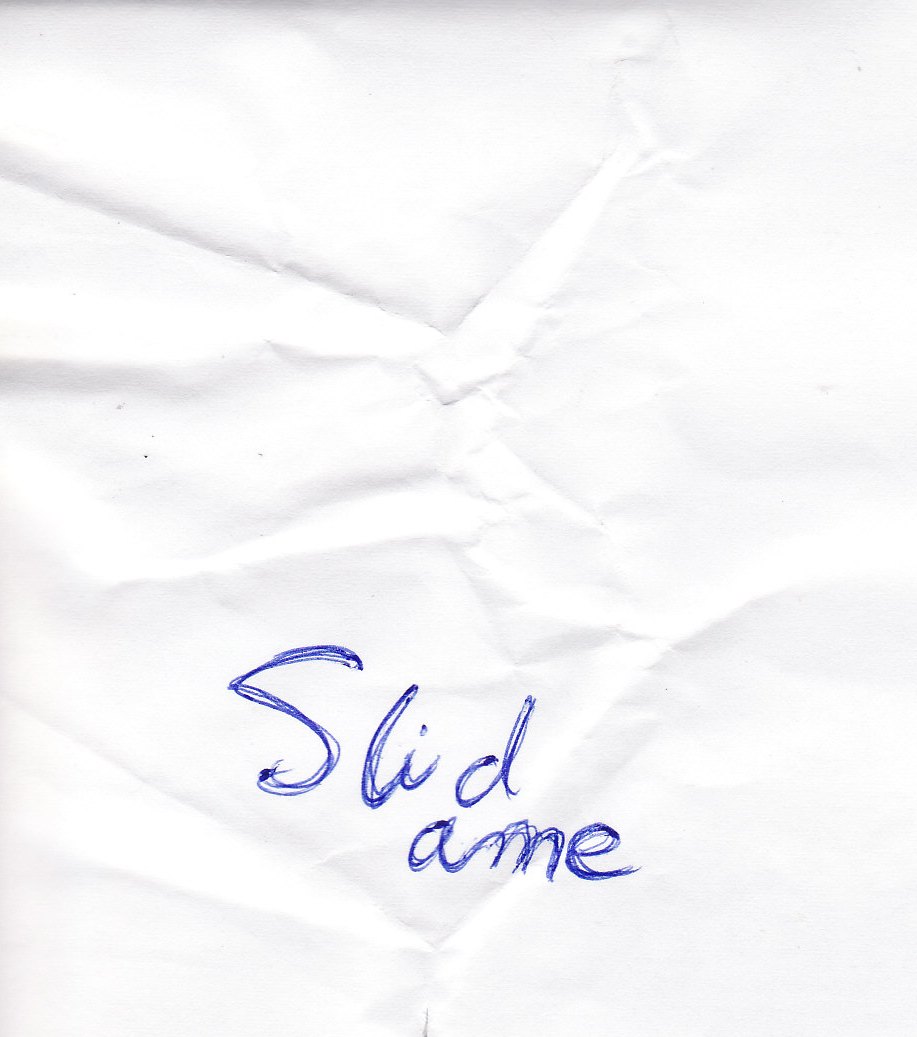 Slid
ame